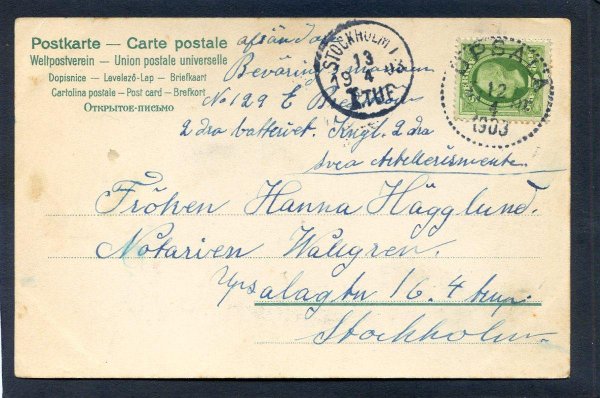 Postkarte — Carte postale
Weltpostverein — Union postale universelle
Dopisnice — Levelező-Lap — Briefkaart
Cartolina postale — Post card — Brefkort
Открытое-письмо
afsändare
Beväring
No 129 E
2 dra batteriet. Kngl. 2 dra
Svea Artilleriregemente.
STOCKHOLM 1
13
19 4 03
1 TUR
UPSALA
12
4
1903
Fröken Hanna Hägglund.
Notarien Wallgren.
Upsalagtn 16. 4 trup.
Stockholm.